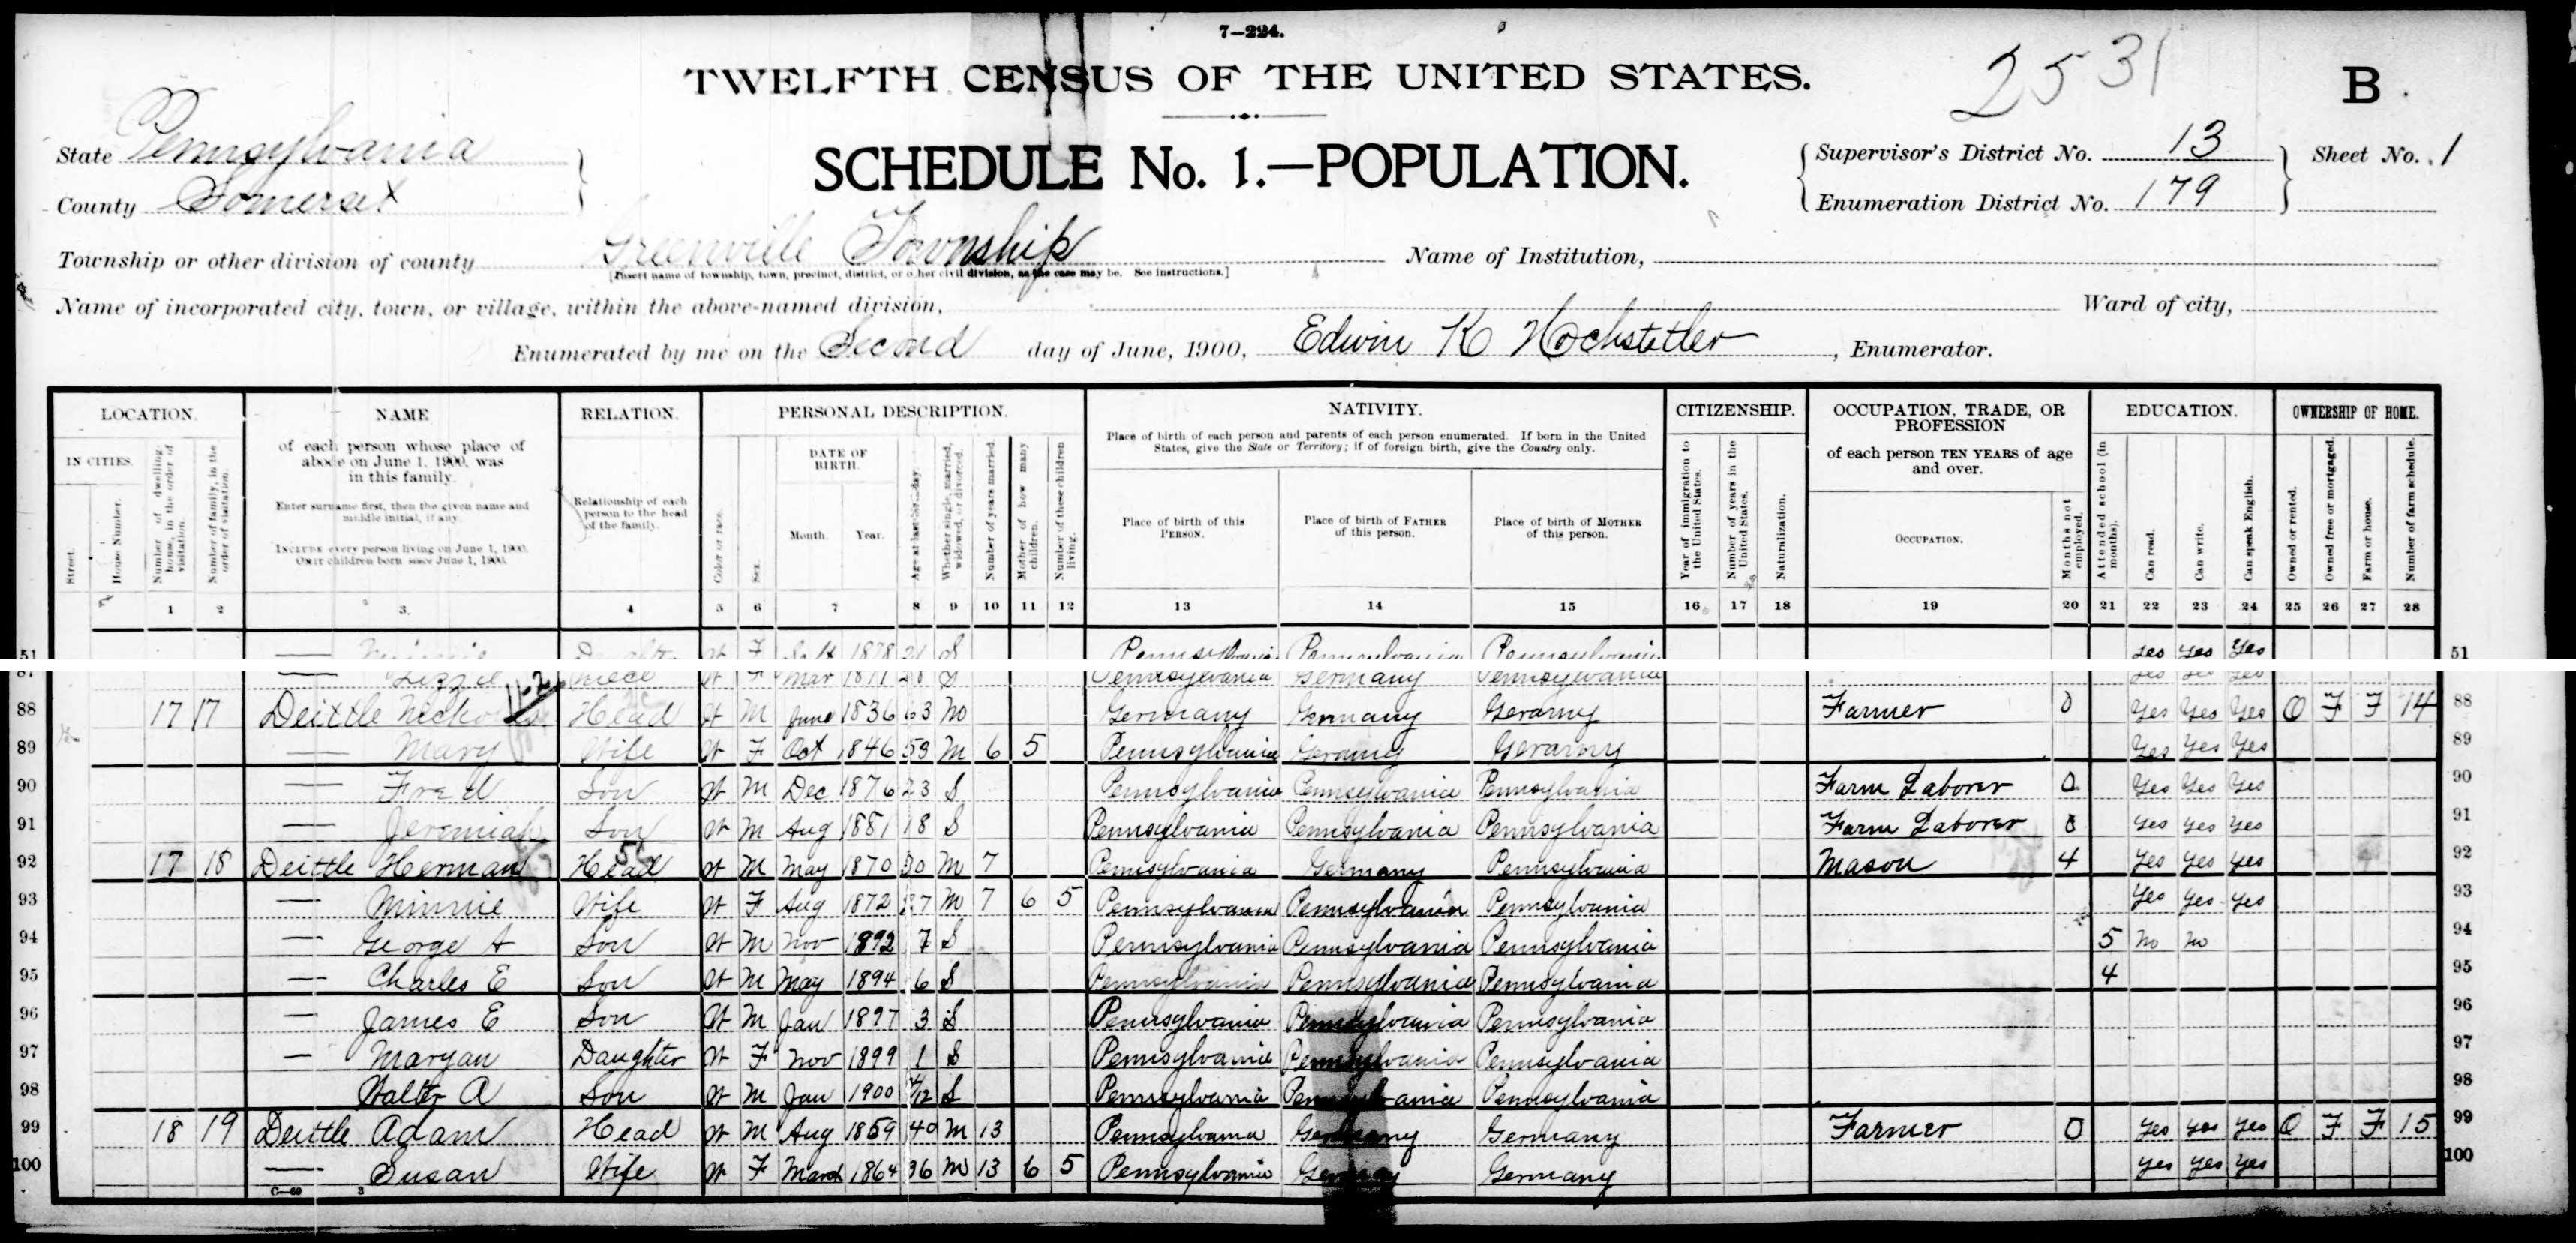 7—224.
TWELFTH CENSUS OF THE UNITED STATES.
2531
B
State Pennsylvania
County Somerset
SCHEDULE No. 1.—POPULATION.
Supervisor's District No. 13
Enumeration District No. 179
Sheet No. 1
Township or other division of county Greenville Township
[Insert name of township, town, precinct, district, or other civil division, as the case may be. See instructions.]
Name of Institution,
Name of incorporated city, town, or village, within the above-named division,
Ward of city,
Enumerated by me on the Second day of June, 1900, Edwin K Hochstetler, Enumerator.
LOCATION. NAME RELATION. PERSONAL DESCRIPTION. NATIVITY. CITIZENSHIP. OCCUPATION, TRADE, OR PROFESSION EDUCATION. OWNERSHIP OF HOME.
IN CITIES.
Street.
House Number.
Number of dwelling-house, in the order of visitation.
Number of family, in the order of visitation.
of each person whose place of abode on June 1, 1900, was in this family.
Enter surname first, then the given name and middle initial, if any.
INCLUDE every person living on June 1, 1900.
OMIT children born since June 1, 1900.
Relationship of each person to the head of the family.
Color or race.
Sex.
DATE OF BIRTH.
Month. Year.
Age at last birthday.
Whether single, married, widowed, or divorced.
Number of years married.
Mother of how many children.
Number of these children living.
Place of birth of each person and parents of each person enumerated. If born in the United States, give the State or Territory; if of foreign birth, give the Country only.
Place of birth of this PERSON.
Place of birth of FATHER of this person.
Place of birth of MOTHER of this person.
Year of immigration to the United States.
Number of years in the United States.
Naturalization.
of each person TEN YEARS of age and over.
OCCUPATION.
Months not employed.
Attended school (in months).
Can read.
Can write.
Can speak English.
Owned or rented.
Owned free or mortgaged.
Farm or house.
Number of farm schedule.
1 2 3 4 5 6 7 8 9 10 11 12 13 14 15 16 17 18 19 20 21 22 23 24 25 26 27 28
51 — Minnie Daughter W F Sept 1878 21 S Pennsylvania Pennsylvania Pennsylvania yes yes yes 51
— Lizzie Niece W F Mar S Pennsylvania Germany Pennsylvania yes yes yes
88 17 17 Deittle Nicholas Head W M June 1836 63 Germany Germany Geramy Farmer 0 Yes Yes Yes O F F 14 88
89 — Mary Wife W F Oct 1846 53 M 6 5 Pennsylvania Geramy Geramy Yes Yes Yes 89
90 — Fred Son W M Dec 1876 23 S Pennsylvania Pennsylvania Pennsylvania Farm Laborer 0 Yes Yes Yes 90
91 — Jeremiah Son W M Aug 1881 18 S Pennsylvania Pennsylvania Pennsylvania Farm Laborer 0 yes yes yes 91
92 17 18 Deittle Herman Head W M May 1870 30 M 7 Pennsylvania Germany Pennsylvania Mason 4 yes yes yes 92
93 — Minnie Wife W F Aug 1872 27 M 7 6 5 Pennsylvania Pennsylvania Pennsylvania yes yes yes 93
94 — George A Son W M Nov 1892 7 S Pennsylvania Pennsylvania Pennsylvania 5 no no 94
95 — Charles E Son W M May 1894 6 S Pennsylvania Pennsylvania Pennsylvania 4 95
96 — James E Son W M Jan 1897 3 S Pennsylvania Pennsylvania Pennsylvania 96
97 — Maryan Daughter W F Nov 1899 1 S Pennsylvania Pennsylvania Pennsylvania 97
98 Walter A Son W M Jan 1900 4/12 S Pennsylvania Pennsylvania Pennsylvania 98
99 18 19 Deittle Adam Head W M Aug 1859 40 M 13 Pennsylvania Germany Germany Farmer 0 yes yes yes O F F 15 99
100 — Susan Wife W F March 1864 36 M 13 6 5 Pennsylvania Germany Germany yes yes yes 100
C—60 3